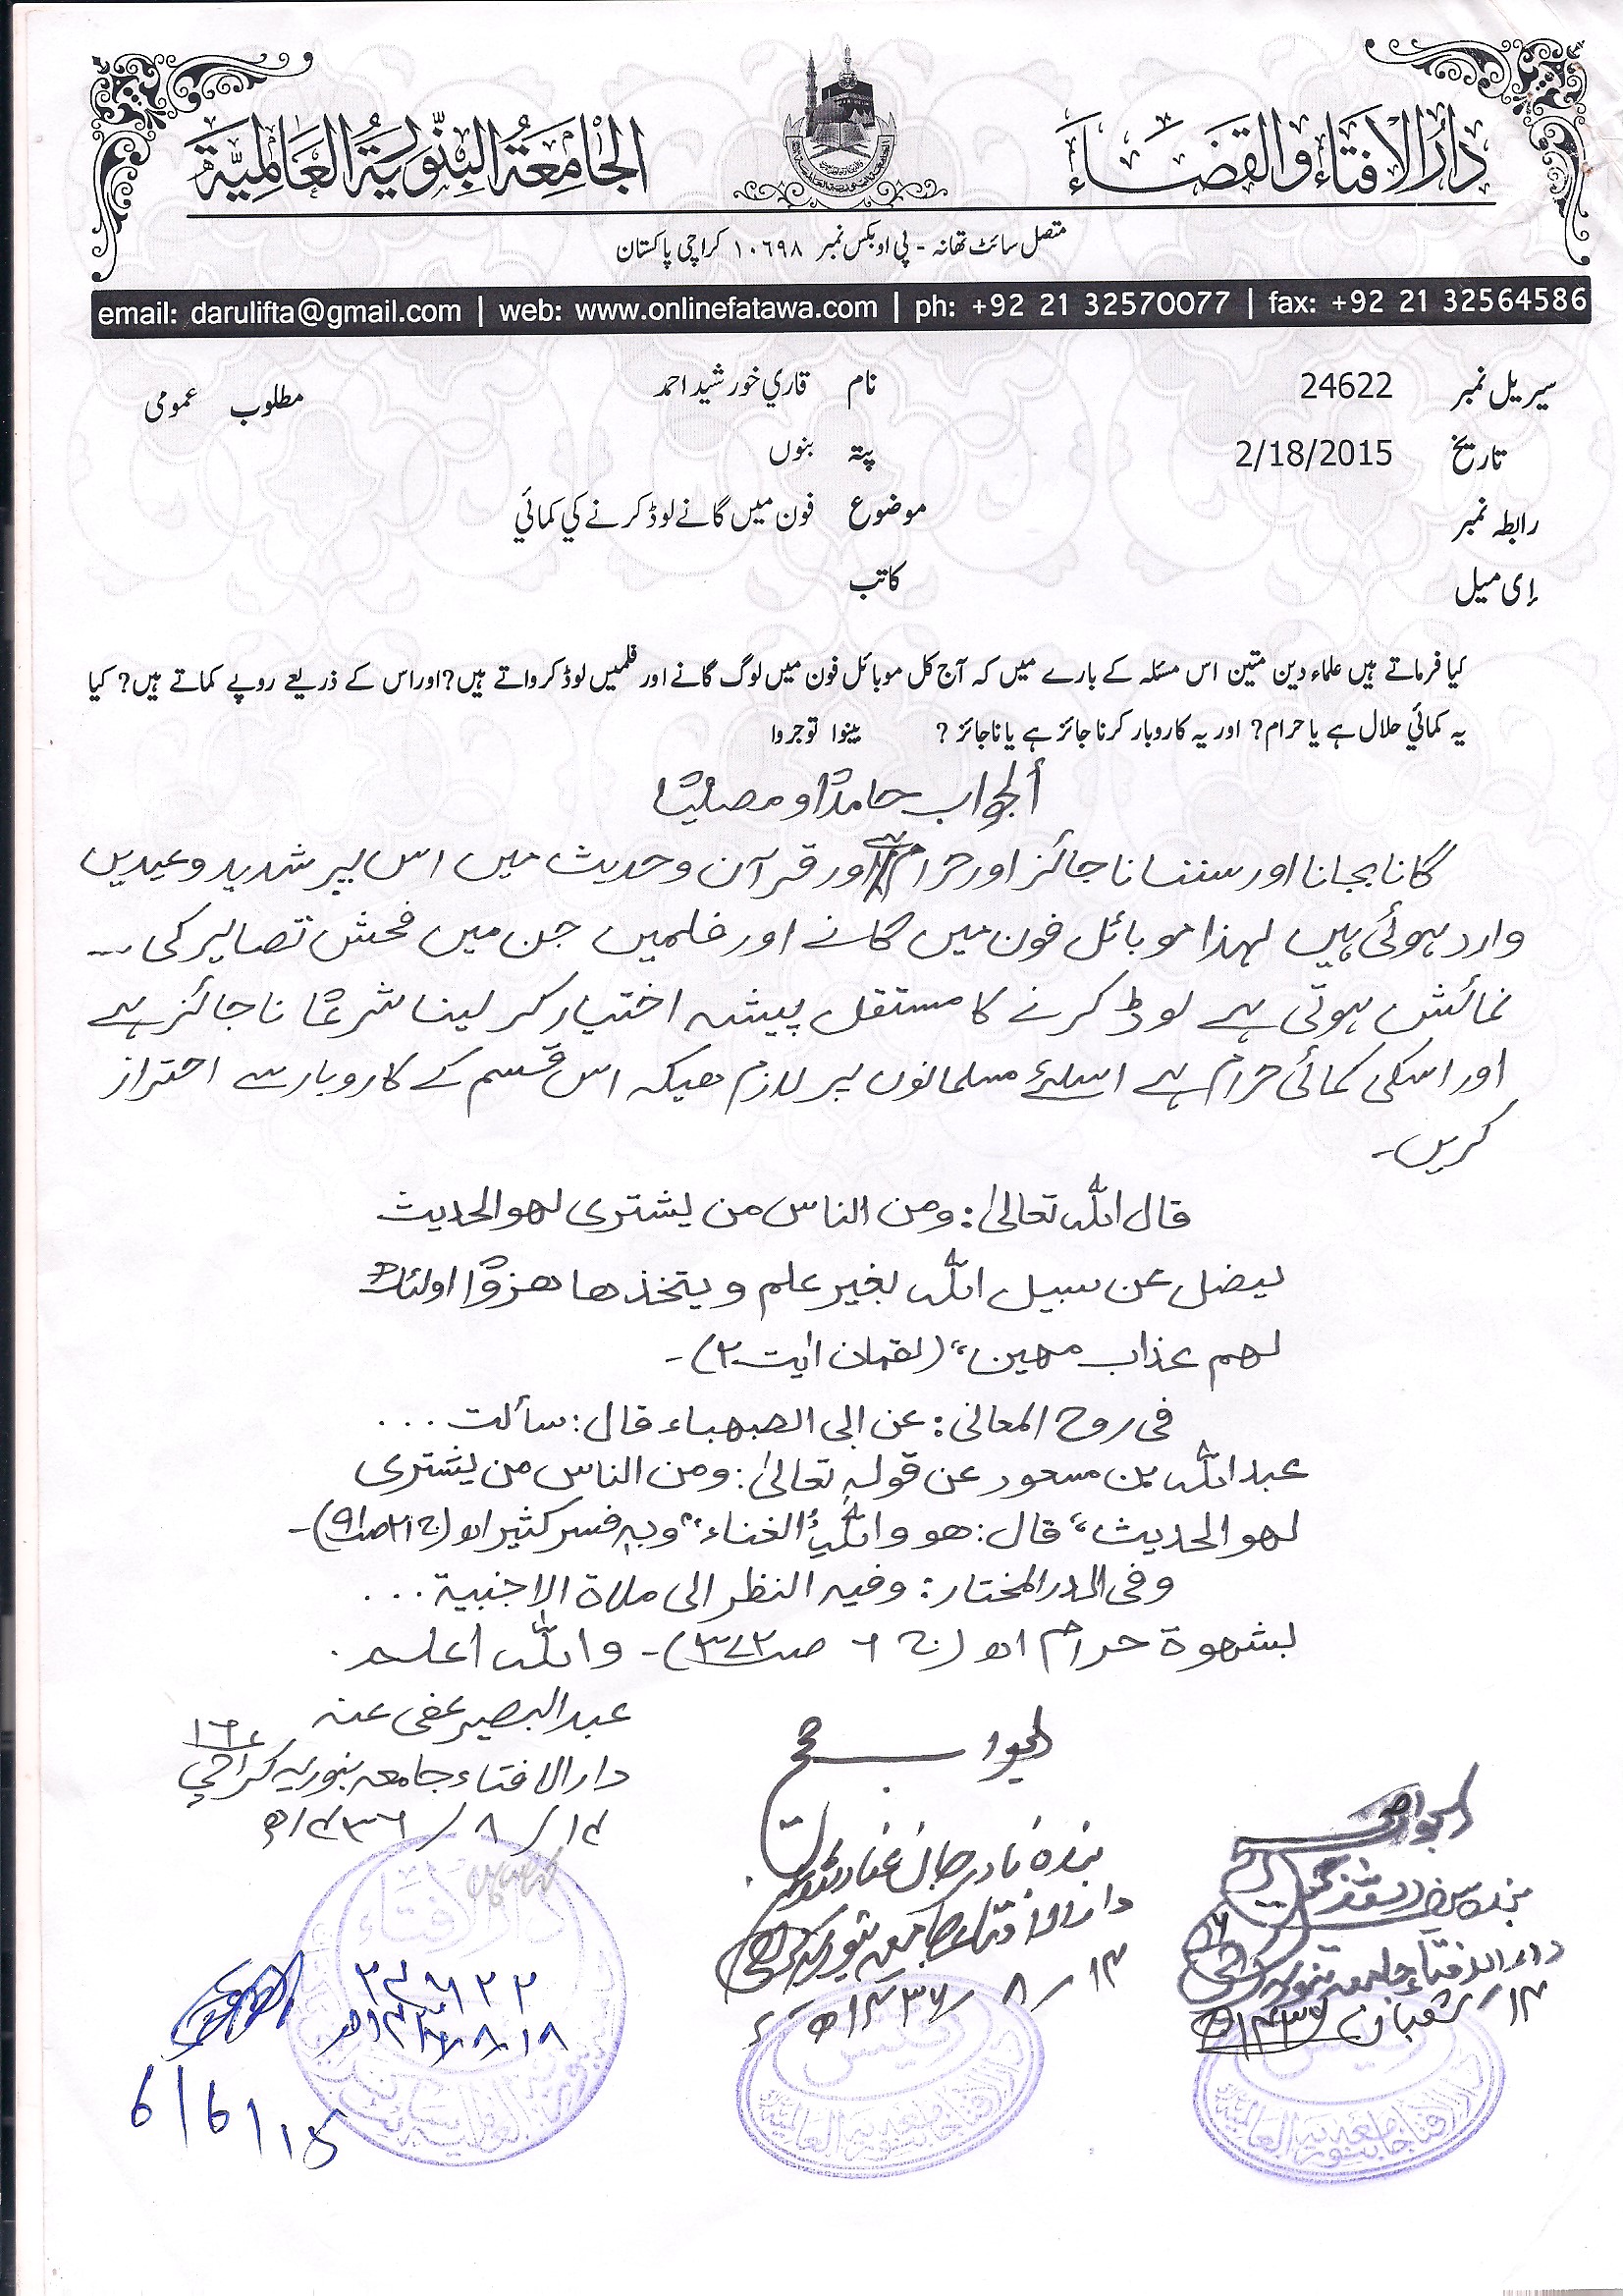 دارالافتاء والقضاء
الجامعة البنورية العالمية
متصل سائٹ تھانہ - پی او بکس نمبر ۱۰۶۹۸ کراچی پاکستان
email: darulifta@gmail.com | web: www.onlinefatawa.com | ph: +92 21 32570077 | fax: +92 21 32564586
سیریل نمبر 24622 نام قاري خورشيد احمد مطلوب عمومی
تاریخ 2/18/2015 پتہ بنوں
رابطہ نمبر موضوع فون ميں گانے لوڈ كرنے كي كمائي
اِی میل کاتب
کیا فرماتے ہیں علماء دین متین اس مسئلہ کے بارے میں کہ آج کل موبائل فون میں لوگ گانے اور فلمیں لوڈ کرواتے ہیں؟ اور اس کے ذریعے روپے کماتے ہیں؟ کیا
یہ کمائي حلال ہے یا حرام؟ اور یہ کاروبار کرنا جائز ہے یا ناجائز ؟ بینوا توجروا
ألجواب حامدًا و مصلیًا
گانا بجانا اور سننا ناجائز اور حرام ہے اور قرآن و حدیث میں اس پر شدید وعیدیں
وارد ہوئی ہیں لہذا موبائل فون میں گانے اور فلمیں جن میں فحش تصاویر کی ...
نمائش ہوتی ہے لوڈ کرنے کا مستقل پیشہ اختیار کر لینا شرعًا ناجائز ہے
اور اسکی کمائی حرام ہے اسلئے مسلمانوں پر لازم ہیکہ اس قسم کے کاروبار سے احتراز
کریں۔
قال اللہ تعالیٰ: ومن الناس من یشتری لهو الحدیث
لیضل عن سبیل اللہ بغیر علم و یتخذها هزوًا اولئك
لهم عذاب مهین" (لقمان اٰیت ۲)۔
فی روح المعانی: عن ابی الصهباء قال: سألت ...
عبد اللہ بن مسعود عن قولہ تعالیٰ: ومن الناس من یشتری
لهو الحدیث" قال: هو واللہِ الغناء" وبہ فسر کثیر اھ (ج۲۱ ص۹۱)۔
وفی الدر المختار: وفیہ النظر الی ملاءة الاجنبیة ...
بشهوة حرام اھ (ج ۶ ص۳۷۲)۔ واللہ اعلم۔
عبد البصیر عفی عنہ
دارالافتاء جامعہ بنوریہ کراچی ۱۶
۱۴/۸/۱۴۳۶ھ
الجواب صحیح
بندہ نادر جان عفا
دارالافتاء جامعہ بنوریہ کراچی
۱۴/۸/۱۴۳۶ھ
الجواب صحیح
دارالافتاء جامعہ بنوریہ کراچی
۱۴/شعبان ۱۴۳۶ھ
دارالافتاء
۲۴۶۲۲
۱۸/۸/۱۴۳۶ھ
6/6/15
رئیس
دارالافتاء جامعہ بنوریہ العالمیہ
رئیس
دارالافتاء جامعہ بنوریہ العالمیہ